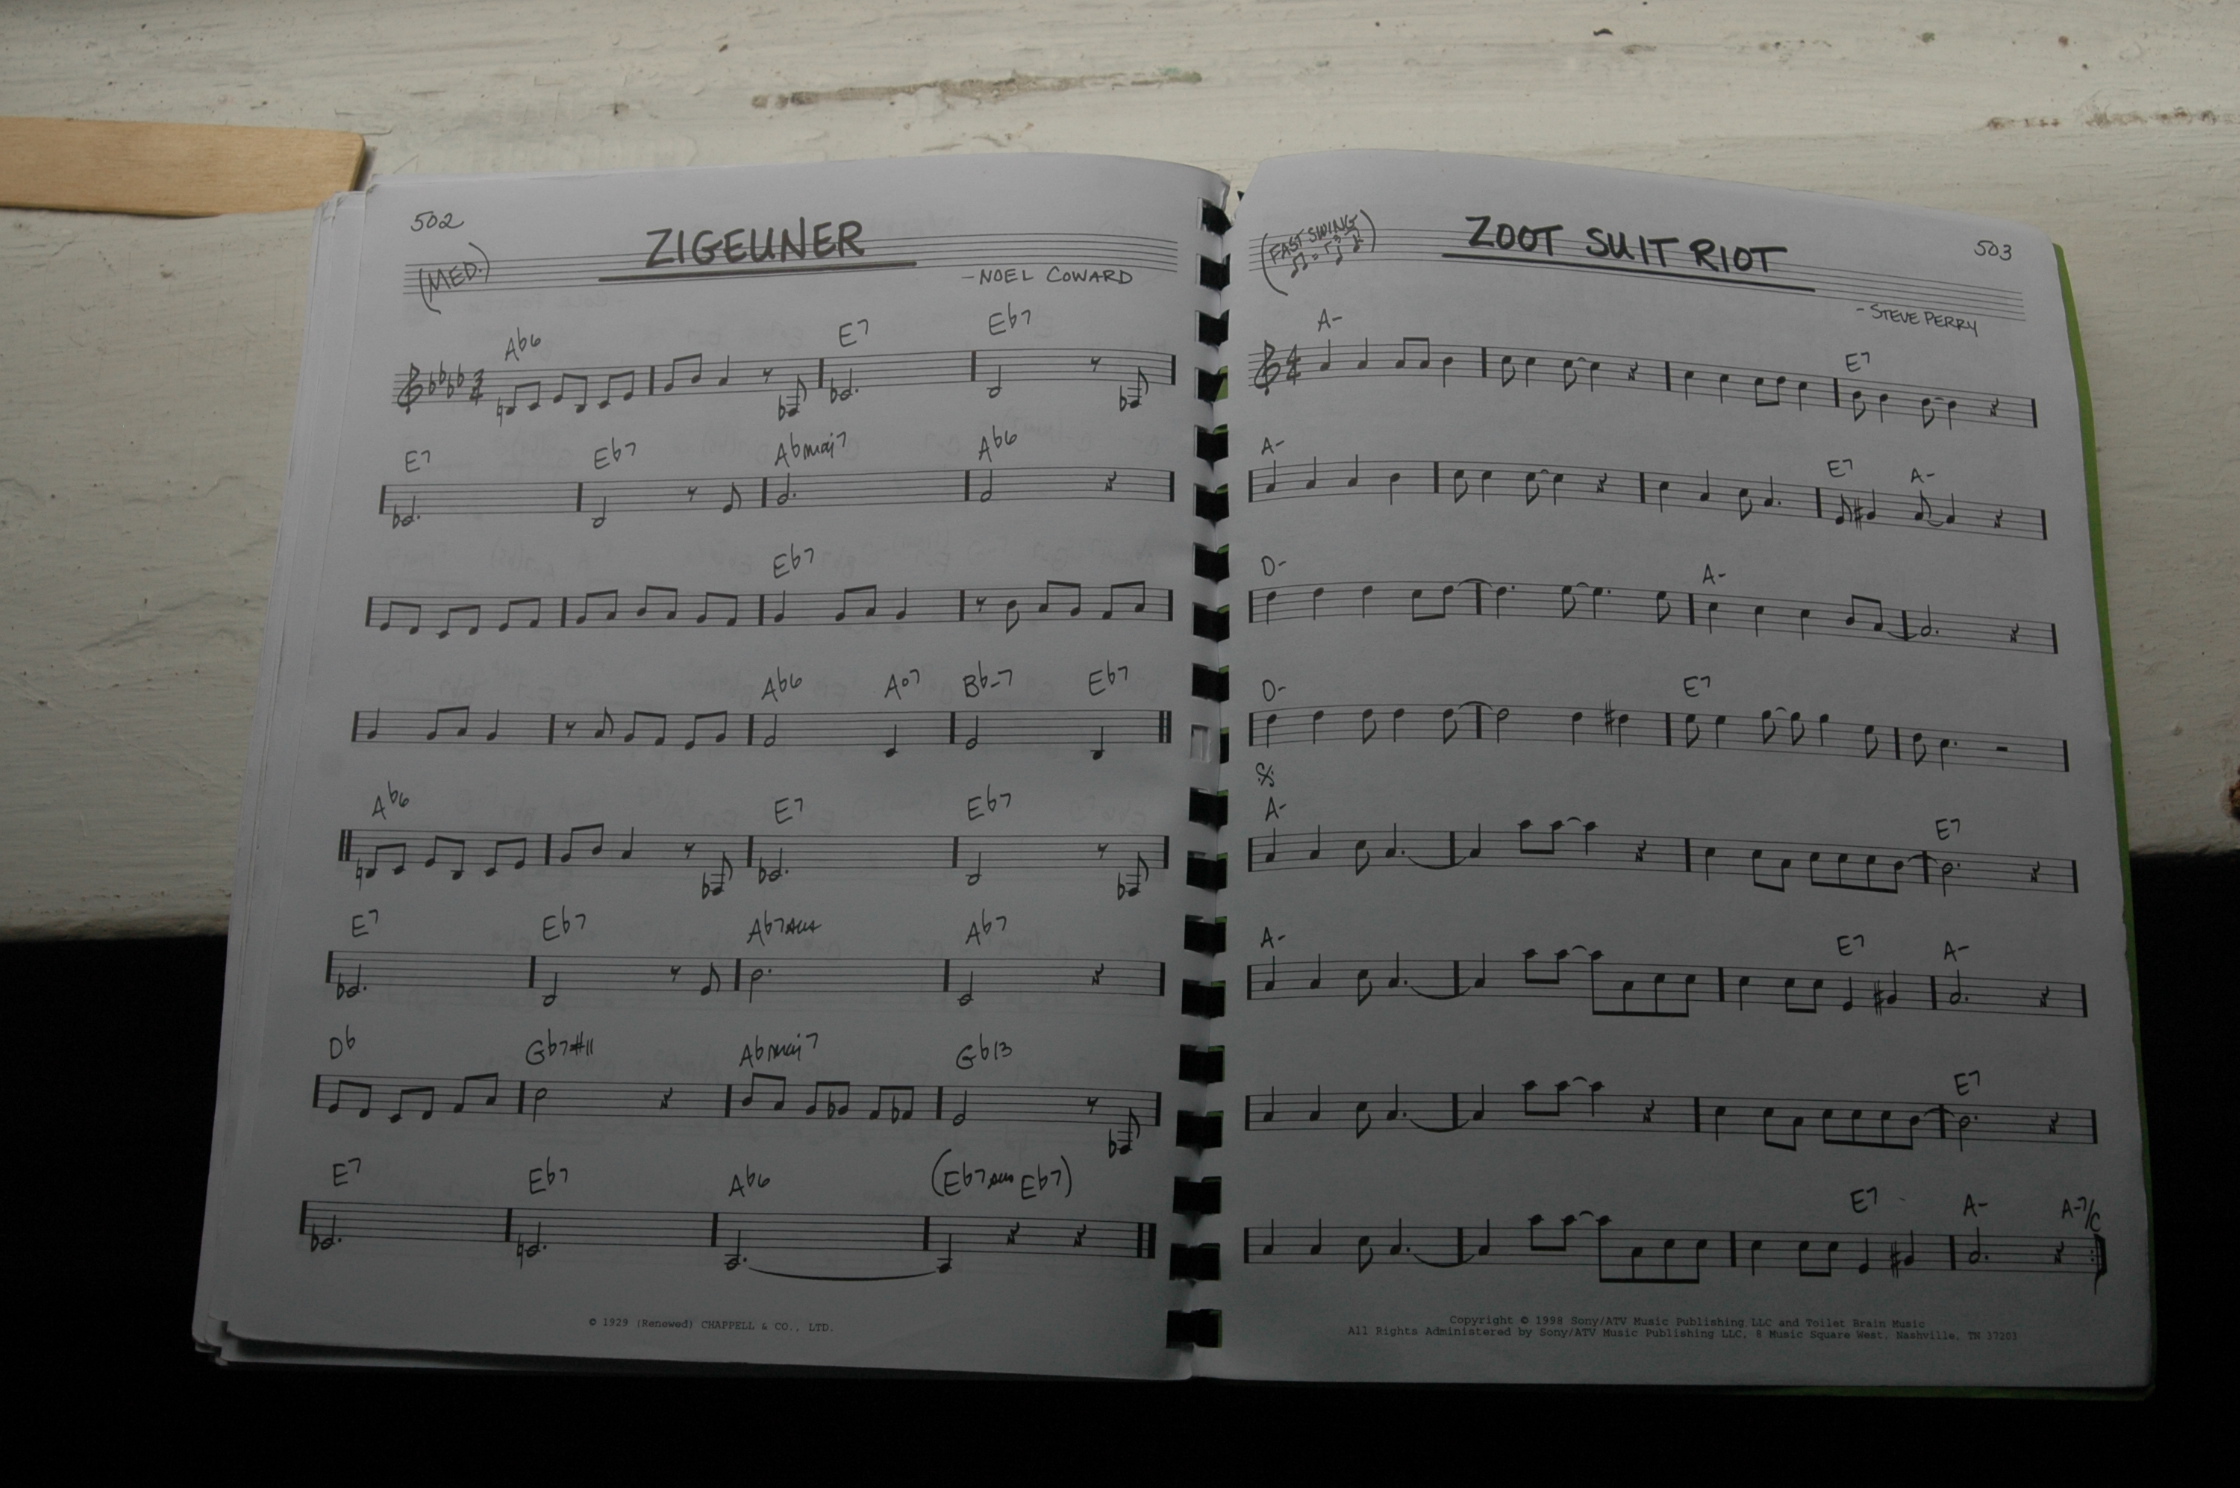 502
ZIGEUNER
(MED.)
- NOEL COWARD
Ab6 E7 Eb7
E7 Eb7 Abmaj7 Ab6
Eb7
Ab6 A°7 Bb-7 Eb7
Ab6 E7 Eb7
E7 Eb7 Ab7sus Ab7
Db Gb7#11 Abmaj7 Gb13
E7 Eb7 Ab6 (Eb7sus Eb7)
© 1929 (Renewed) CHAPPELL & CO., LTD.
503
ZOOT SUIT RIOT
(FAST SWING)
- STEVE PERRY
A- E7
A- E7 A-
D- A-
D- E7
A- E7
A- E7 A-
E7
E7 A- A-7/C
Copyright © 1998 Sony/ATV Music Publishing LLC and Toilet Brain Music
All Rights Administered by Sony/ATV Music Publishing LLC, 8 Music Square West, Nashville, TN 37203